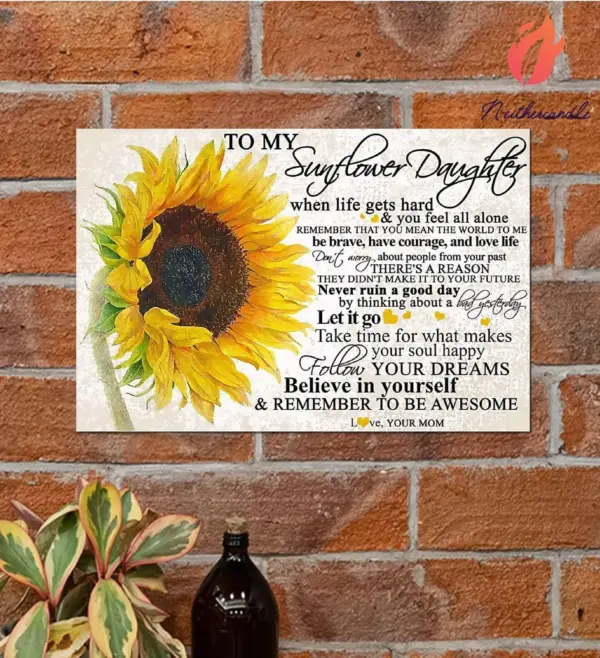 Neithercandle
TO MY
Sunflower Daughter
when life gets hard
& you feel all alone
REMEMBER THAT YOU MEAN THE WORLD TO ME
be brave, have courage, and love life
Don't worry, about people from your past
THERE'S A REASON
THEY DIDN'T MAKE IT TO YOUR FUTURE
Never ruin a good day
by thinking about a bad yesterday
Let it go
Take time for what makes
your soul happy
Follow YOUR DREAMS
Believe in yourself
& REMEMBER TO BE AWESOME
Love, YOUR MOM